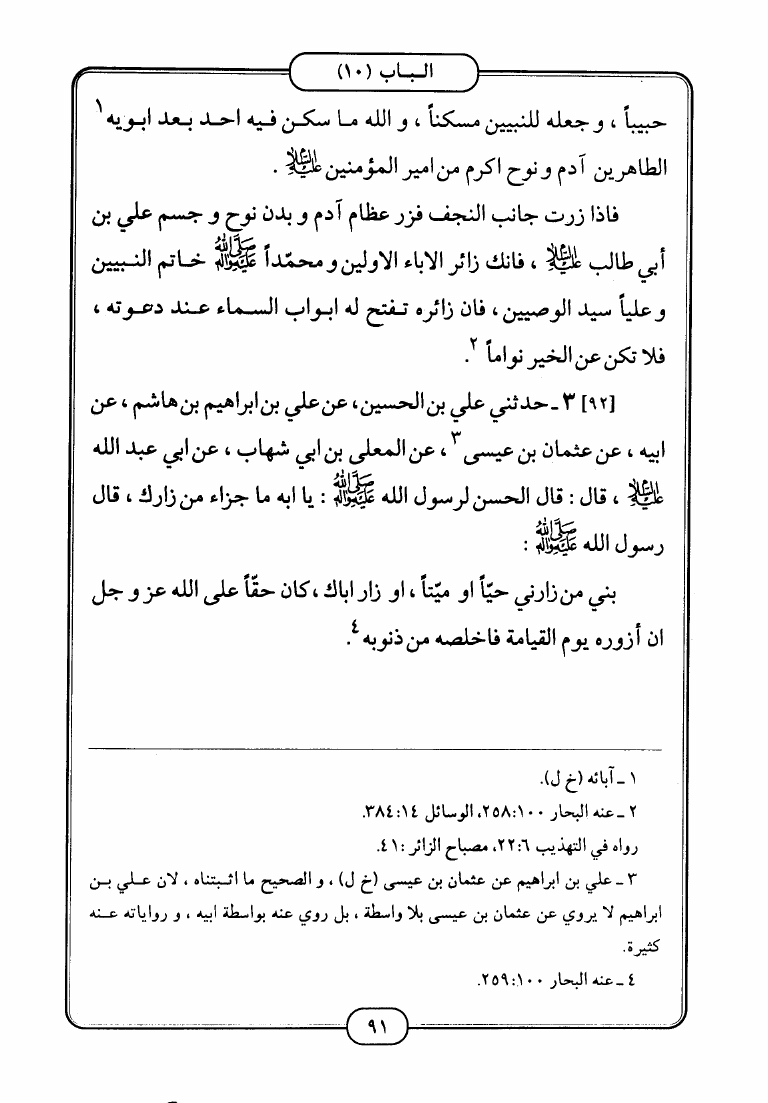 الباب (١٠)
حبيباً ، و جعله للنبيين مسكناً ، و الله ما سكن فيه احد بعد ابويه ١
الطاهرين آدم و نوح اكرم من امير المؤمنين عليه السلام .
فاذا زرت جانب النجف فزر عظام آدم و بدن نوح و جسم علي بن
أبي طالب عليه السلام ، فانك زائر الاباء الاولين و محمّداً صلى الله عليه وآله خاتم النبيين
و علياً سيد الوصيين ، فان زائره تفتح له ابواب السماء عند دعوته ،
فلا تكن عن الخير نواماً ٢.
[٩٢] ٣ ـ حدثني علي بن الحسين، عن علي بن ابراهيم بن هاشم ، عن
ابيه ، عن عثمان بن عيسى ٣ ، عن المعلى بن ابي شهاب ، عن ابي عبد الله
عليه السلام ، قال : قال الحسن لرسول الله صلى الله عليه وآله : يا ابه ما جزاء من زارك ، قال
رسول الله صلى الله عليه وآله :
بني من زارني حيّاً او ميّتاً ، او زار اباك ، كان حقّاً على الله عز و جل
ان أزوره يوم القيامة فاخلصه من ذنوبه ٤.
١ ـ آبائه (خ ل).
٢ ـ عنه البحار ١٠٠:٢٥٨، الوسائل ١٤:٣٨٤.
رواه في التهذيب ٦:٢٢، مصباح الزائر :٤١.
٣ ـ علي بن ابراهيم عن عثمان بن عيسى (خ ل) ، و الصحيح ما اثبتناه ، لان علي بن
ابراهيم لا يروي عن عثمان بن عيسى بلا واسطة ، بل روي عنه بواسطة ابيه ، و رواياته عنه
كثيرة.
٤ ـ عنه البحار ١٠٠:٢٥٩.
٩١